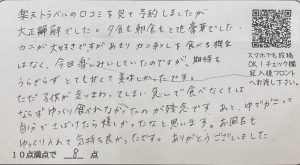 楽天トラベルの口コミを見て予約しましたが
大正解でした。夕食も朝食もとても豪華でした。
カニが大好きですがあまりカニ刺しを食べる機会
はなく、今回楽しみにしていたのですが、期待を
うらぎらずとても甘くて美味しかったです。
ただ子供が走りまわってしまい急いで食べなくては
ならずゆっくり食べれなかったのが残念です。あと、ゆでガニって
自分でさばけたら嬉しかったなと思います。お風呂も
ゆっくり入れて気持ち良かったです。ありがとうございました。
10点満点で 8 点
スマホでも投稿
OK!チェック欄
記入後フロント
へお渡し下さい。